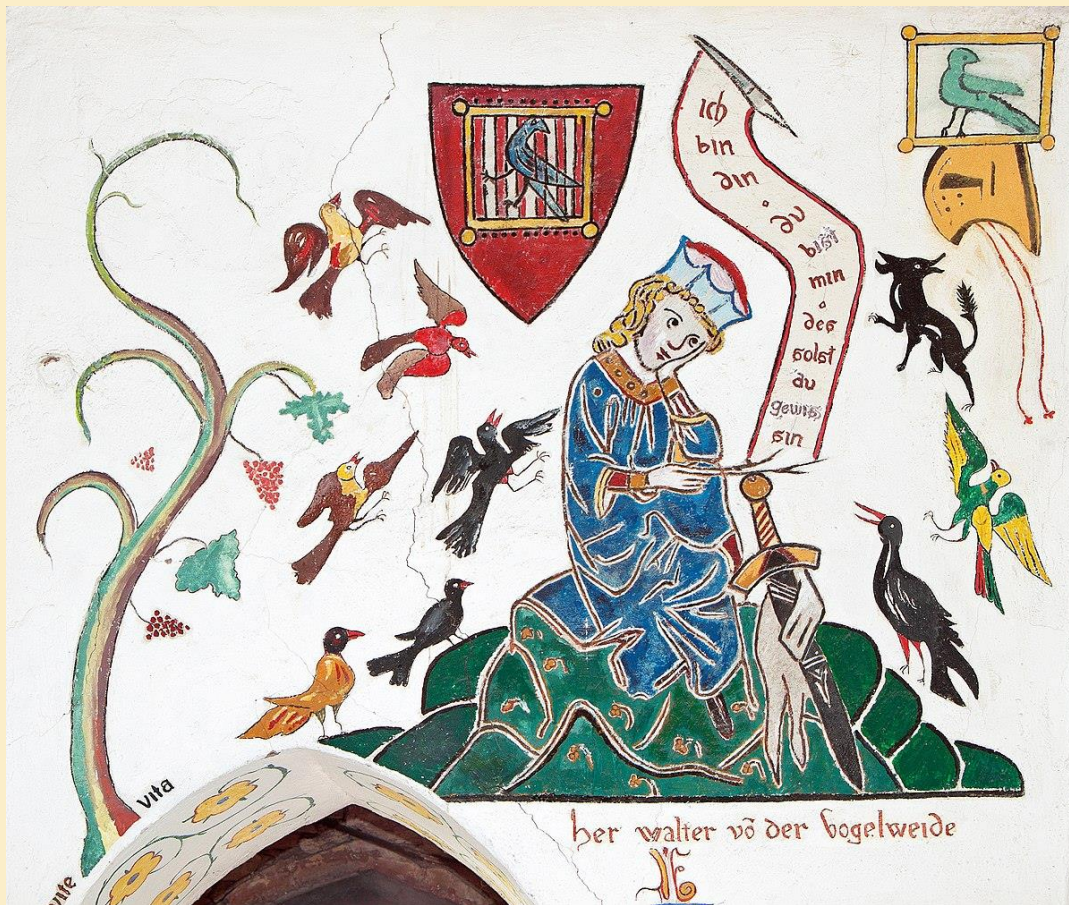 ich
bin
din
du
bist
min
des
solst
du
gewiss
sin
vita
her walter vō der vogelweide